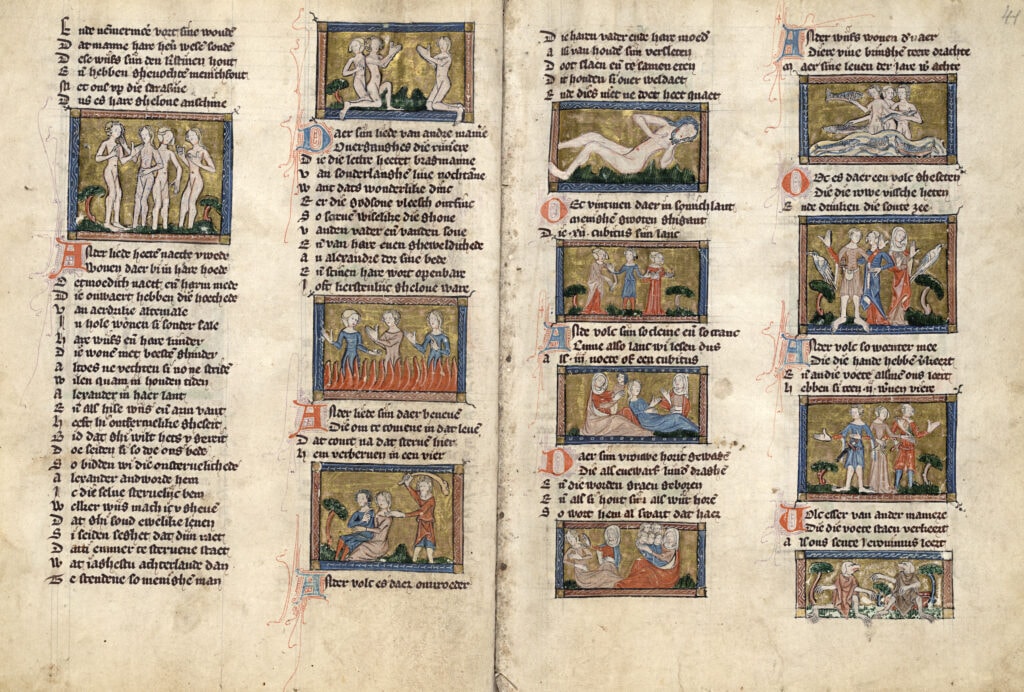 Ende nemermee vort sine woude
Dat manne hare hen wese soude
Dese wijs sijn den lesten hout
En hebben ghevochte menichfout
Met ons up die sarasine
Dus es hare ghelove anschine
Aster liede heete naecte vroede
Wonen daer bi in hare hoede
Oetmoedich naect en harm mede
Die onwaert hebben die hoechede
Van aerdrike altemale
In hole wonen si sonder sale
Hare wijfs en hare kinder
Die wone met beeste ghinder
Altoes ne vechten si no ne stride
Wilen quam in houden tiden
Alexander in haer lant
En als hise wijs en arm vant
Heeft hi ontfermelike gheseit
Bid dat ghi wilt hets v gereit
Doe seiden si so doe ons bede
So bidden wi die onstervelichede
Alexander andworde hem
Ic die selve stervelijc bem
Welker wijs mach ic v gheve
Dat ghi soud ewelike leven
Si seiden seghet dat dijn raet
Dattu emmer te stervene staet
Wat jaghestu achterlande dan
Te scendene so meneghe man
Daer sijn liede van andre manire
Over ganghes die riviere
Die die lettre heetet bragmanne
Van sonderlanghe live nochtane
Want dats wonderlike dinc
Eer die godsone vleesch ontfinc
So screve wiselike die ghone
Vanden vader en vanden sone
En van hare even gheweldichede
An alexandre tor sine bede
En scinen hare wort openbare
Joft kerstenlijc ghelove ware
Aster liede sijn daer beneve
Die om te comene in dat leve
Dat comt na dat sterve hier
Hem verberven in een vier
Aster volc es daer onvroeder
Die haren vader ende hare moed
Als van houden sijn versleten
Doot slaen en te samen eten
Dit houden si over weldaet
Ende dies niet ne doet heet quaet
Oec vintmen daer in sonich lant
Meneghe grooten ghigant
Die xij cubitus sijn lanc
Aster volc sijn so cleine en so cranc
Cume also lanc wi lesen dus
Als iij voete of een cubitus
Daer sijn vrouwe horic gewagh
Die als eenwarf kind draghe
En die worden graeu geboren
En als si hout sijn als wijt hore
So wort hem al swart dat haer
Aster wijfs wonen daer
Diere vive bringhe teere drachte
Maer sine leven der jare vij achte
Oec es daer een volc gheseten
Die die rowe vissche heten
Ende drinken die soute zee
Aster volc so wenter mee
Die die hande hebbe verkeert
En an die voete alsme ons leert
Hebben si teen ij werven viere
Volc esser van ander maniere
Die die voete staen verkeert
Als ons sente Jeronimus leert
41